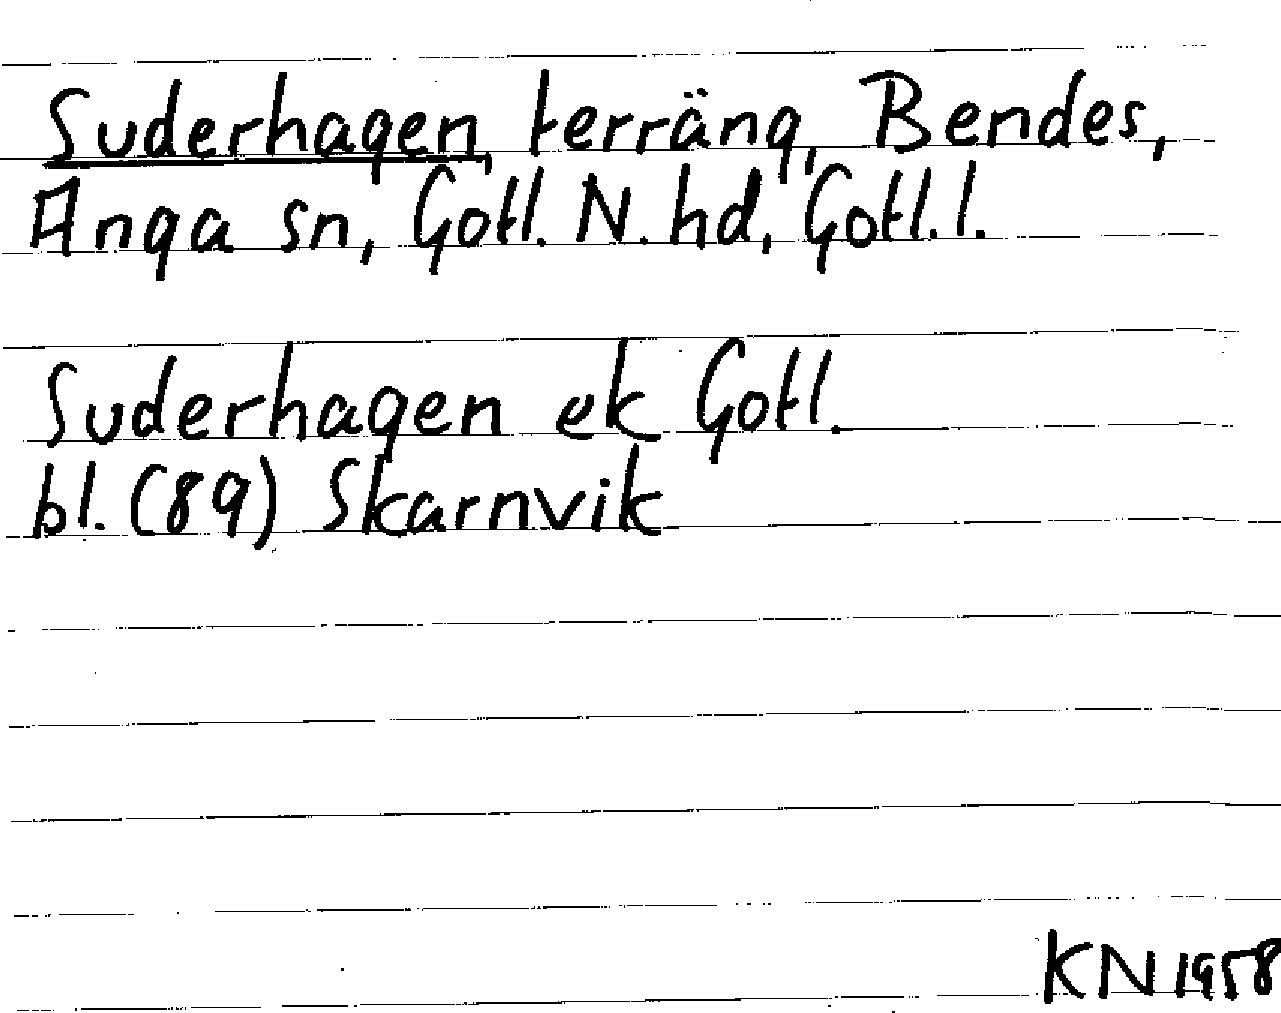 Suderhagen, terräng, Bendes,
Anga sn, Gotl. N. hd, Gotl. l.
Suderhagen ek Gotl.
bl. (89) Skarnvik
KN 1958